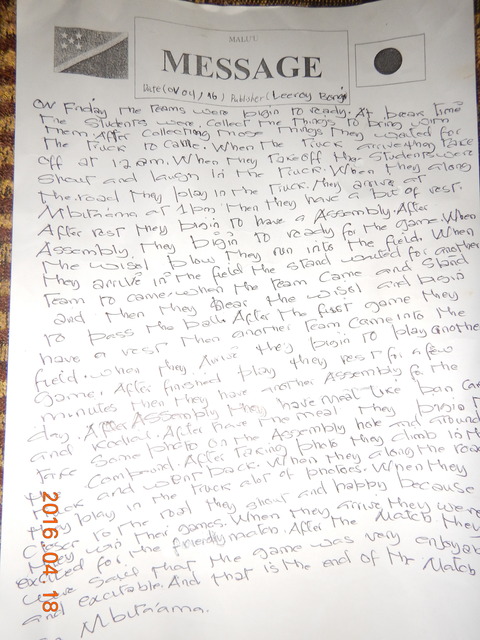 MALU'U
MESSAGE
Date(04/04/16) Publisher(Leeroy
On Friday the teams were bigin to ready. At break time
the students were collect the things to bring with
them. After collecting those things they waited for
the truck to came. When the truck arrive they take
off at 12 am. When they takeoff the students were
shout and laugh in the truck. When they along
the road they play in the truck. They arrive at
Mbita'ama at 1pm then they have a bit of rest.
After rest they bigin to have a Assembly. After
Assembly they bigin to ready for the game. When
the wisel blow they run into the field. When
they arrive in the field the stand waited for another
team to came. when the team came and stand
and then they bear the wisel and bigin
to pass the ball. After the first game they
have a rest then another team came into the
field. when they arrive they bigin to play another
game. After finished play they rest for a few
minutes then they have another Assembly for the
day. After Assembly they have meal like ban cake
and After have the meal they bigin to
take same photo on the Assembly hole and around
the compound. After taking photo they climb in the
truck and went back. When they along the road
they play in the truck alot of photoes. When they
closer to the road they shout and happy because
they win their games. When they arrive they were
excited for the friendly match. After the match they
were said that the game was very enjoyab
and excitable. And that is the end of the Match
Mbita'ama.
2016.04.18